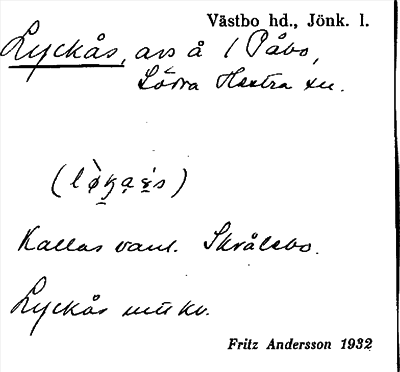 Västbo hd., Jönk. l.
Lyckås, avs å 1 Påbo,
Södra Hestra sn.
Kallas vanl. Skrålebo.
Lyckås
Fritz Andersson 1932